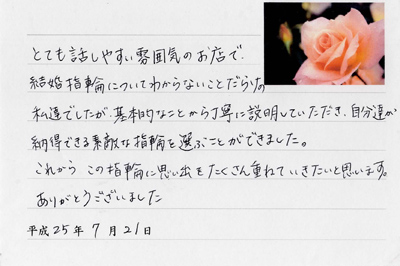 とても話しやすい雰囲気のお店で、
結婚指輪についてわからないことだらけの
私達でしたが、基本的なことから丁寧に説明していただき、自分達が
納得できる素敵な指輪を選ぶことができました。
これから この指輪に思い出をたくさん重ねていきたいと思います。
ありがとうございました
平成25年 7月21日